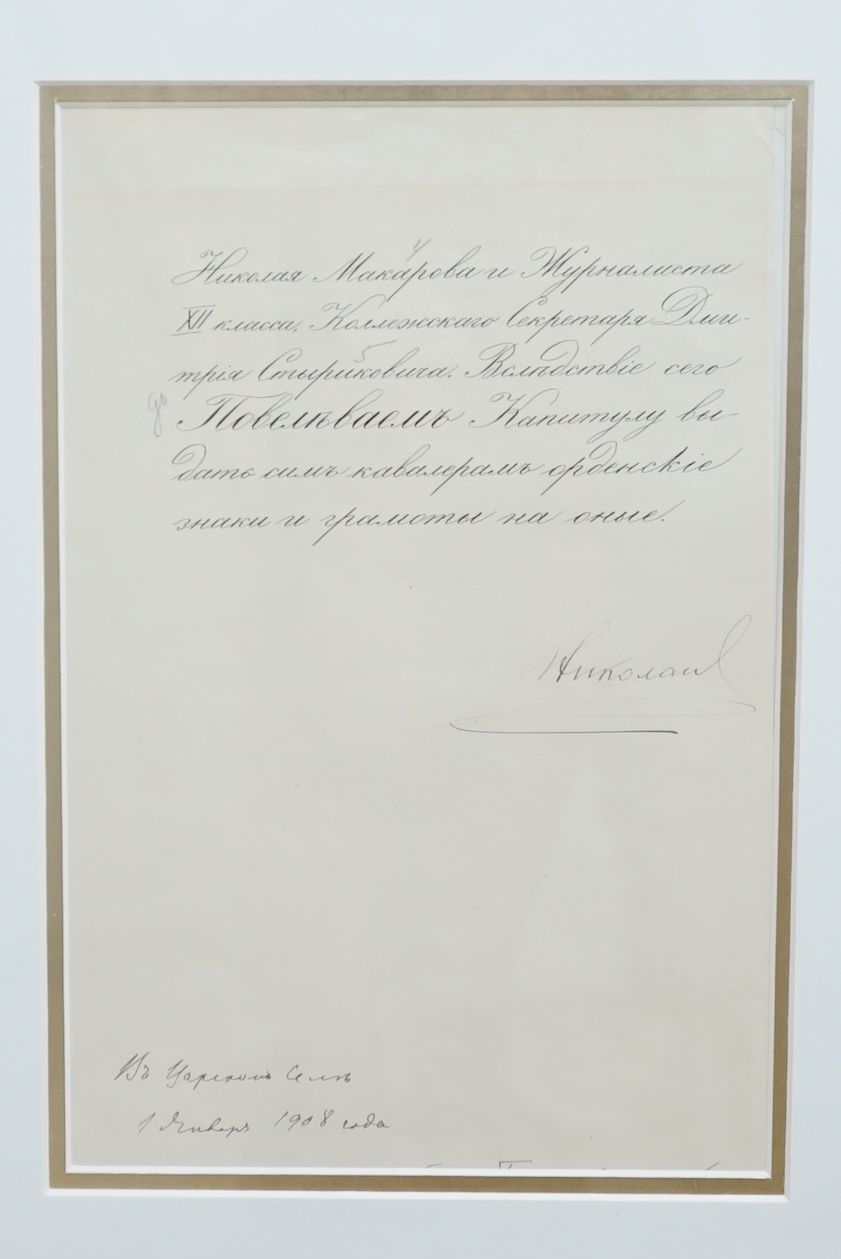 4
Николая Макарова и Журналиста
XII класса, Коллежскаго Секретаря Дми-
5
трія Стыриковича. Вслѣдствіе сего
до
Повелѣваемъ Капитулу вы-
дать симъ кавалерамъ орденскіе
знаки и грамоты на оные.
Николай
Въ Царскомъ Селѣ
1 Января 1908 года